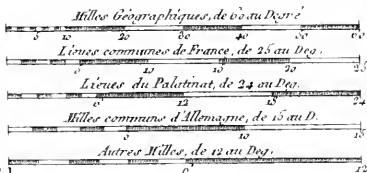 Milles Géographiques, de 60 au Degré
5 10 20 30 40 50 60
Lieues communes de France, de 25 au Deg.
5 10 15 20 25
Lieues du Palatinat, de 24 au Deg.
6 12 18 24
Milles communs d'Allemagne, de 15 au D.
5 10 15
Autres Milles, de 12 au Deg.
6 12